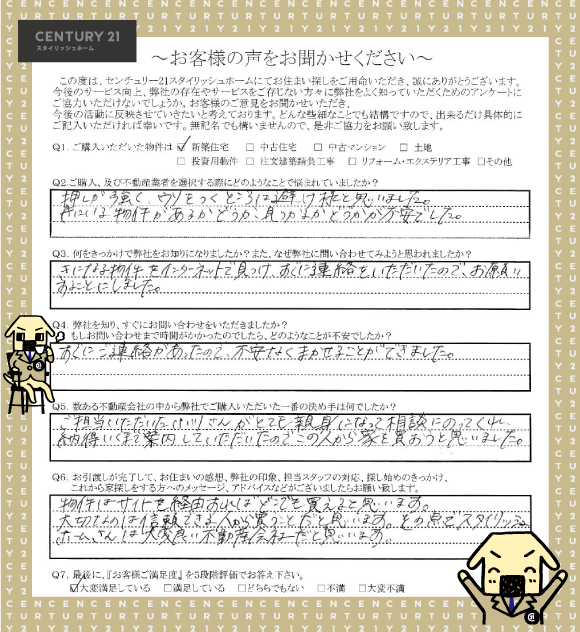 CENTURY 21
スタイリッシュホーム
～お客様の声をお聞かせください～
この度は、センチュリー21スタイリッシュホームにてお住まい探しをご用命いただき、誠にありがとうございます。
今後のサービス向上、弊社の存在やサービスをご存じない方々に弊社をよく知っていただくためのアンケートに
ご協力いただけないでしょうか。お客様のご意見をお聞かせいただき、
今後の活動に反映させていきたいと考えております。どんな些細なことでも結構ですので、出来るだけ具体的に
ご記入いただければ幸いです。無記名でも構いませんので、是非ご協力をお願い致します。
Q1. ご購入いただいた物件は ☑ 新築住宅 □ 中古住宅 □ 中古マンション □ 土地
□ 投資用物件 □ 注文建築請負工事 □ リフォーム・エクステリア工事 □その他
Q2.ご購入、及び不動産業者を選択する際にどのようなことで悩まれていましたか？
押しが強く、ウソをつくところは避け様と思いました。
きにいる物件があるかどうか、見つかるかどうかが不安でした。
Q3. 何をきっかけで弊社をお知りになりましたか？また、なぜ弊社に問い合わせてみようと思われましたか？
きになる物件をインターネットで見つけ、すぐにご連絡をいただいたので、お願い
することにしました。
Q4. 弊社を知り、すぐにお問い合わせをいただきましたか？
もしお問い合わせまで時間がかかったのでしたら、どのようなことが不安でしたか？
すぐにご連絡があったので、不安なくまかせることができました。
Q5. 数ある不動産会社の中から弊社でご購入いただいた一番の決め手は何でしたか？
ご担当いただいた さんがとても親身になって相談にのってくれ、
納得いくまで案内していただいたのでこの人から家を買おうと思いました。
Q6. お引渡しが完了して、お住まいの感想、弊社の印象、担当スタッフの対応、探し始めのきっかけ、
これから家探しをする方へのメッセージ、アドバイスなどがございましたらお願い致します。
物件はサイトを経由すればどこでも買えると思います。
大切なのは信頼できる人から買うことだと思います。その点でスタイリッシュ
ホームさんは大変良い不動産会社だと思います。
Q7. 最後に、『お客様ご満足度』を5段階評価でお答え下さい。
☑大変満足している □満足している □どちらでもない □不満 □大変不満